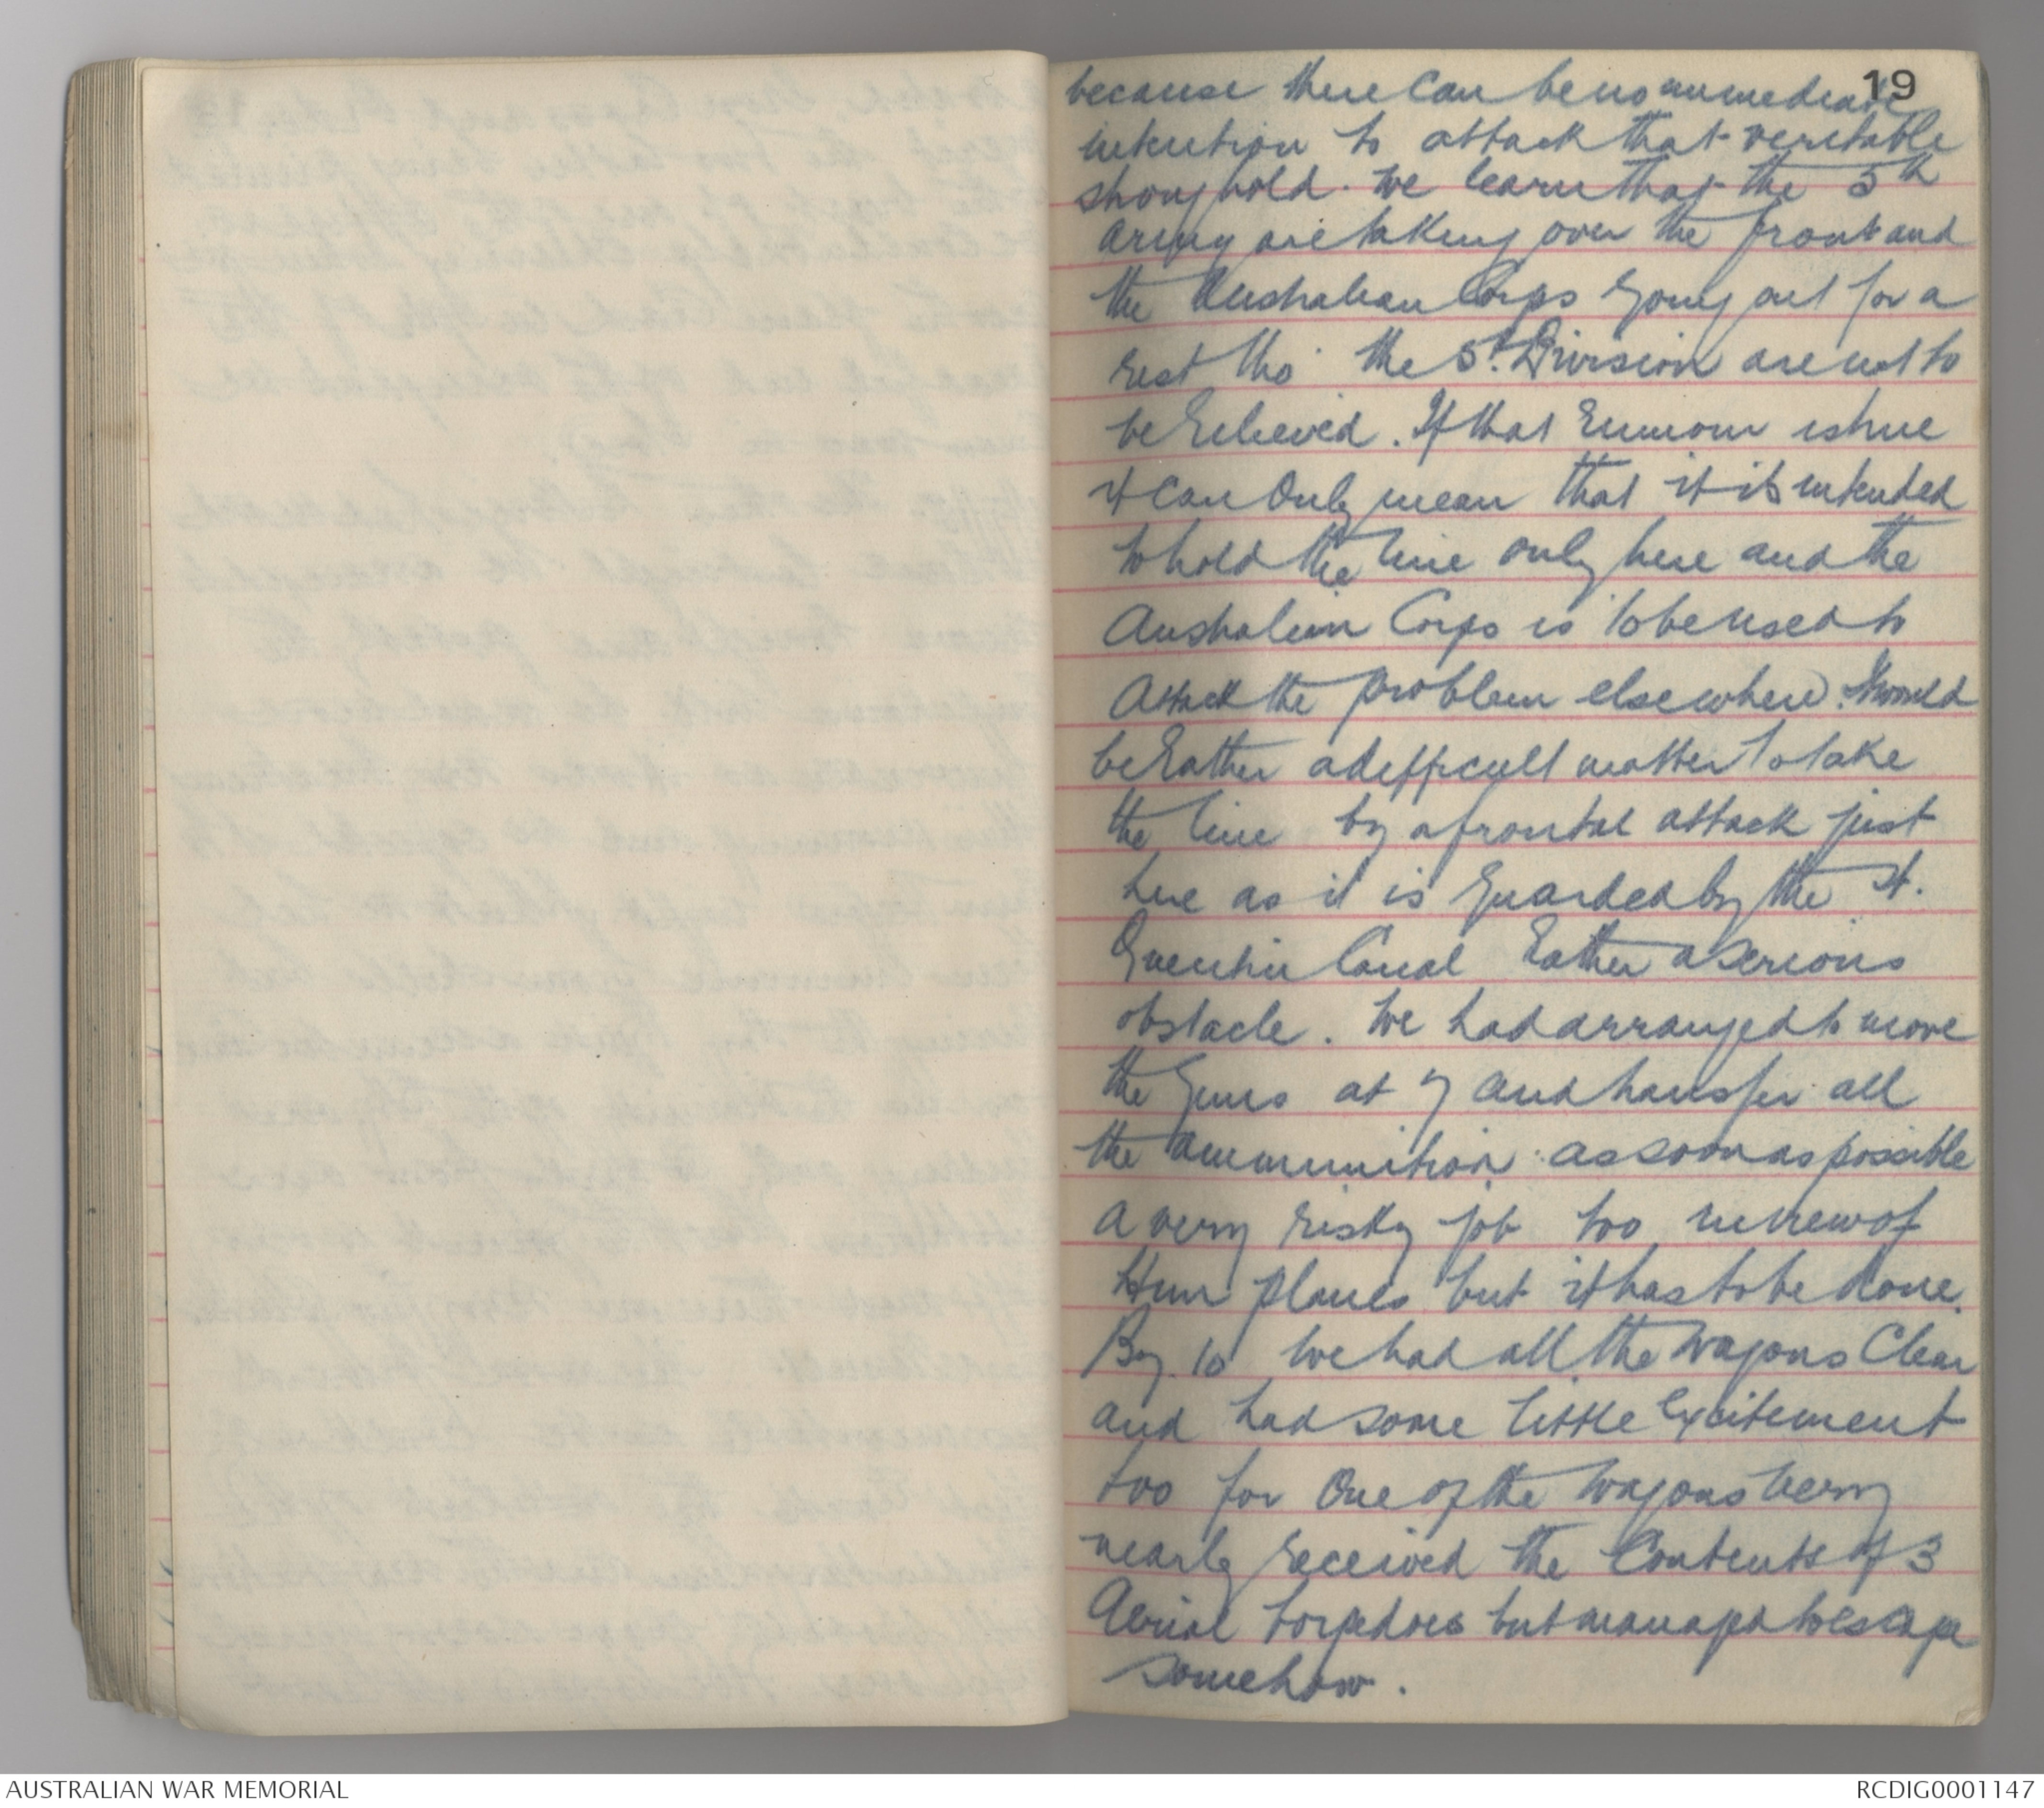 19
because there can be no immediate
intention to attack that veritable
stronghold. We learn that the 5th
Army are taking over the front and
the Australian Corps going out for a
rest tho' the 5th Division are not to
be relieved. If that rumour is true
it can only mean that it is intended
to hold the line only here and the
Australian Corps is to be used to
attack the problem elsewhere. It would
be rather a difficult matter to take
the line by a frontal attack just
here as it is guarded by the St.
Quentin Canal rather a serious
obstacle. We had arranged to move
the guns at 7 and transfer all
the ammunition as soon as possible
a very risky job too in view of
Hun planes but it has to be done.
By 10 we had all the wagons clear
and had some little excitement
too for one of the wagons very
nearly received the contents of 3
Aerial torpedoes but managed to escape
somehow.
AUSTRALIAN WAR MEMORIAL
RCDIG0001147